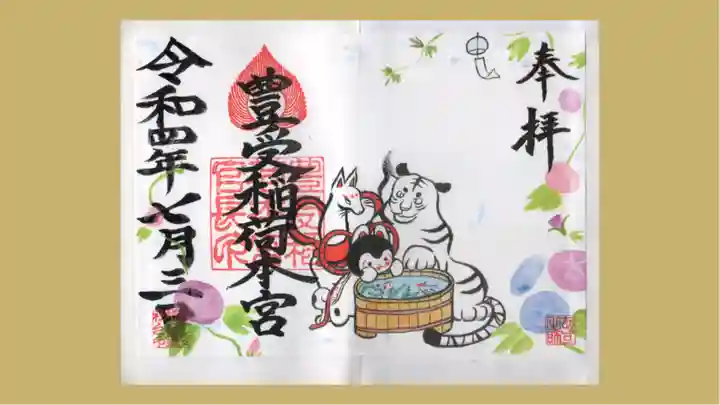 奉拝
豊受稲荷本宮
令和四年七月三一日